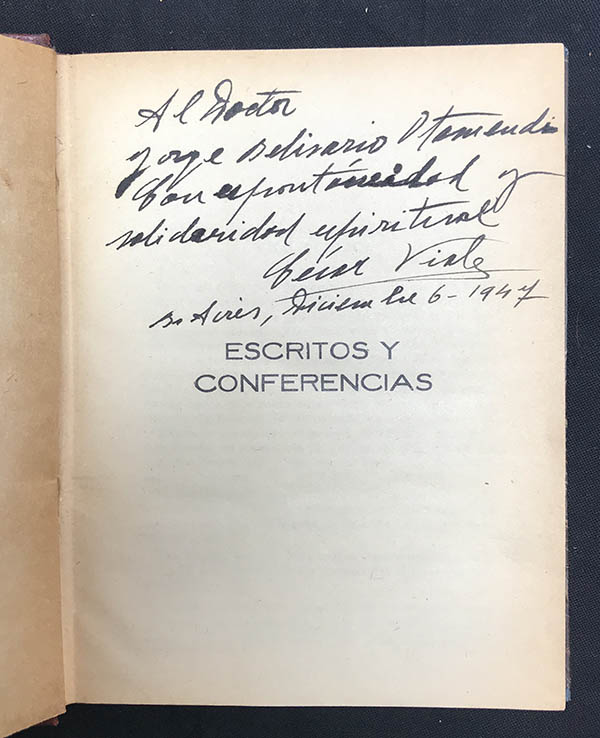 Al Doctor
Jorge Belisario Otamendi
Con espontáneidad y
solidaridad espiritual
César Viale
Bs Aires, Diciembre 6-1947
ESCRITOS Y
CONFERENCIAS